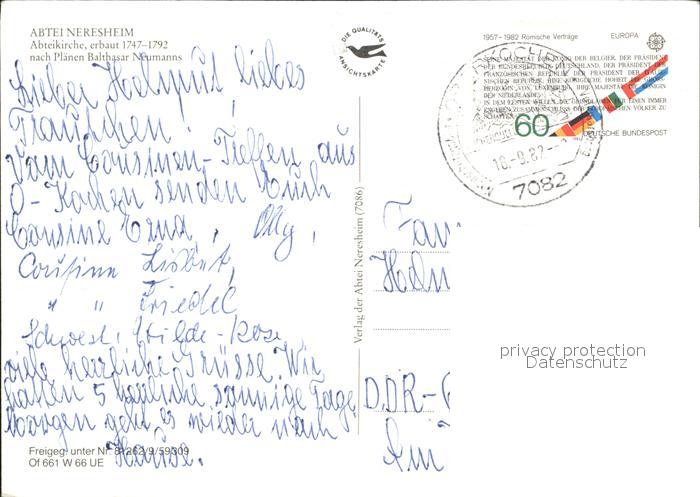 ABTEI NERESHEIM
Abteikirche, erbaut 1747–1792
nach Plänen Balthasar Neumanns
Lieber Helmut, liebes
Traudchen!
Vom Cousinen-Treffen aus
O-Kochen senden Euch
Cousine Erna, Olly,
Cousine Lisbet,
" " Friedel
Schwest. Hilde-Rose
viele herzliche Grüsse. Wir
hatten 5 herrliche sonnige Tage
Morgen geht es wieder nach
Hause.
Freigeg. unter Nr. 81262/9/59309
Of 661 W 66 UE
DIE QUALITÄTS
ANSICHTSKARTE
Verlag der Abtei Neresheim (7086)
1957–1982 Römische Verträge EUROPA
SEINE MAJESTÄT DER KÖNIG DER BELGIER, DER PRÄSIDENT
DER BUNDESREPUBLIK DEUTSCHLAND, DER PRÄSIDENT DER
FRANZÖSISCHEN REPUBLIK, DER PRÄSIDENT DER ITALIE-
NISCHEN REPUBLIK, IHRE KÖNIGLICHE HOHEIT DIE GROSS-
HERZOGIN VON LUXEMBURG, IHRE MAJESTÄT DIE KÖNIGIN
DER NIEDERLANDE,
IN DEM FESTEN WILLEN, DIE GRUNDLAGEN FÜR EINEN IMMER
ENGEREN ZUSAMMENSCHLUSS DER EUROPÄISCHEN VÖLKER ZU
SCHAFFEN
60
DEUTSCHE BUNDESPOST
7082
Fam
DDR-
Am
privacy protection
Datenschutz